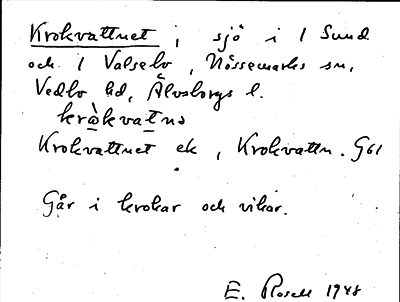 Krokvattnet, sjö i 1 Sund
och 1 Valsebo, Nössemarks sn,
Vedbo hd, Älvsborgs l.
kròkvatnə
Krokvattnet ek, Krokvattn. G61
Går i krokar och vikar.
E. Rosell 1948